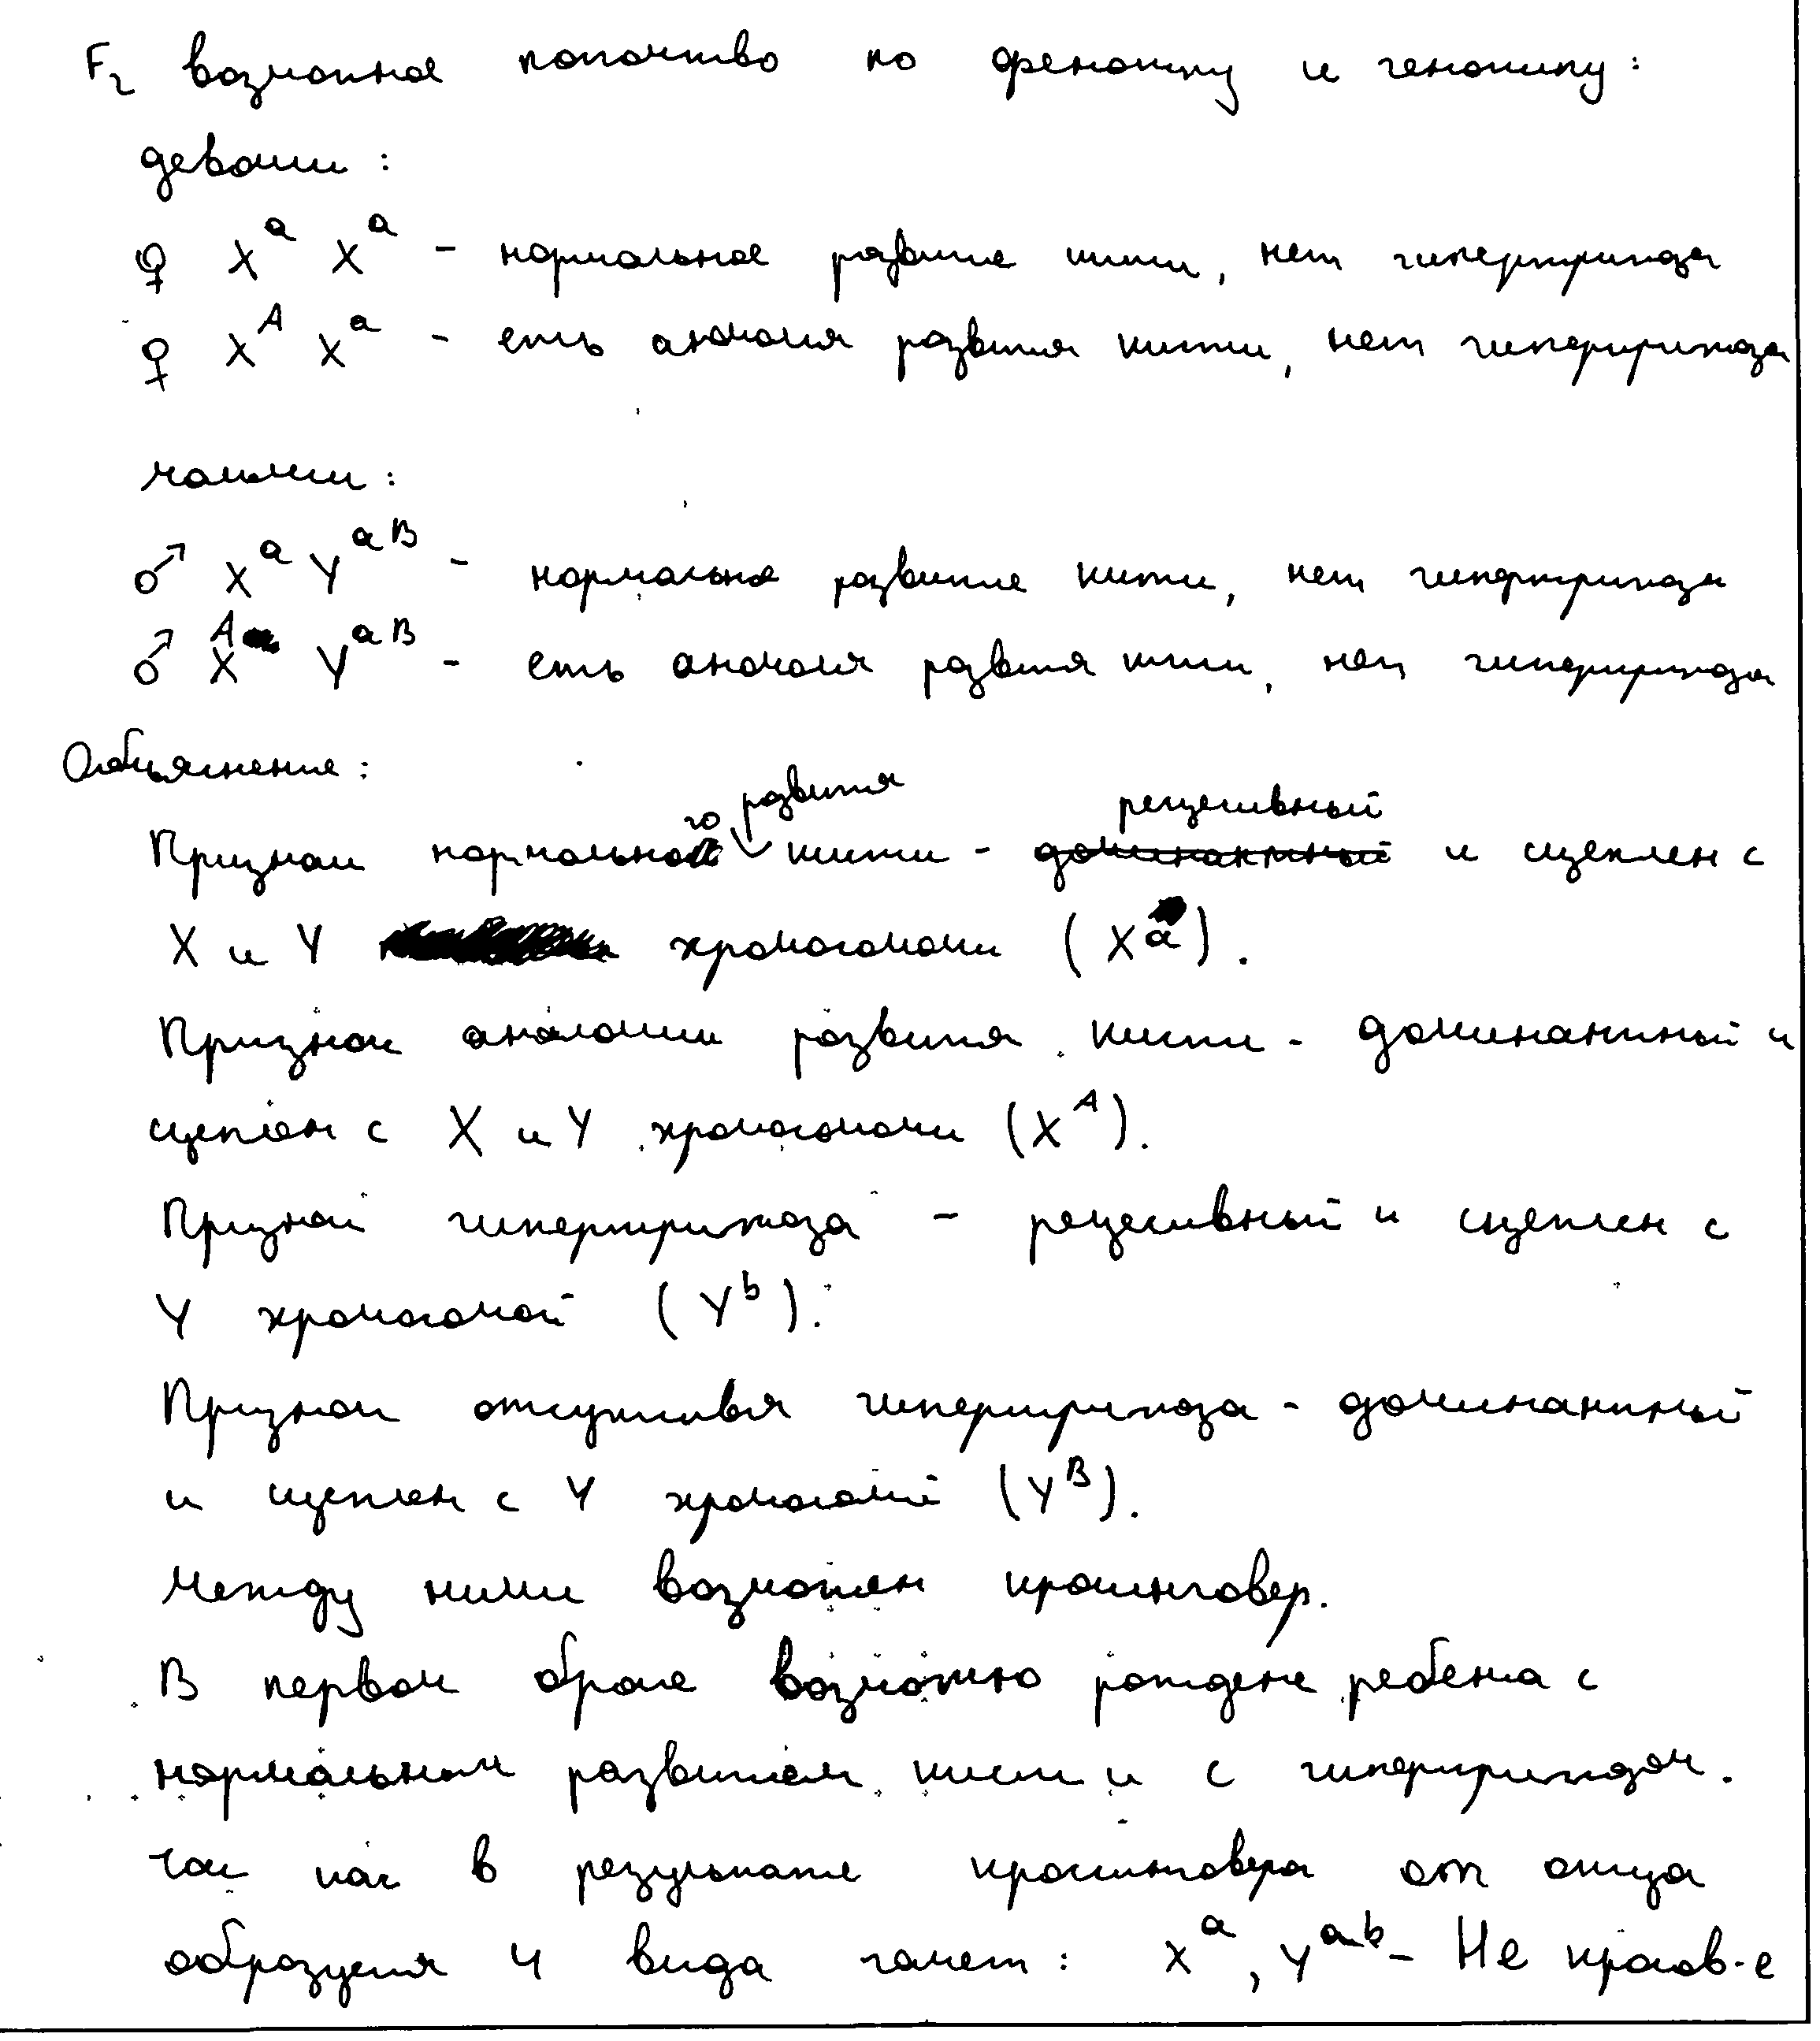 F₂ возможное потомство по фенотипу и генотипу:
девочки:
♀ Xᵃ Xᵃ - нормальное развитие кисти, нет гипертрихоза
♀ Xᴬ Xᵃ - есть аномалия развития кисти, нет гипертрихоза
мальчики:
♂ Xᵃ Yᵃᴮ - нормальное развитие кисти, нет гипертрихоза
♂ Xᴬ Yᵃᴮ - есть аномалия развития кисти, нет гипертрихоза
Объяснение:
го развития рецессивный
Признак нормально кисти - доминантный и сцеплен с
X и Y хромосомами (Xᵃ).
Признак аномалии развития кисти - доминантный и
сцеплен с X и Y хромосомами (Xᴬ).
Признак гипертрихоза - рецессивный и сцеплен с
Y хромосомой (Yᵇ).
Признак отсутствия гипертрихоза - доминантный
и сцеплен с Y хромосомой (Yᴮ).
Между ними возможен кроссинговер.
В первом браке возможно рождение ребенка с
нормальным развитием кисти и с гипертрихозом.
так как в результате кроссинговера от отца
образуется 4 вида гамет: Xᵃ, Yᵃᵇ - Не кроссов-е